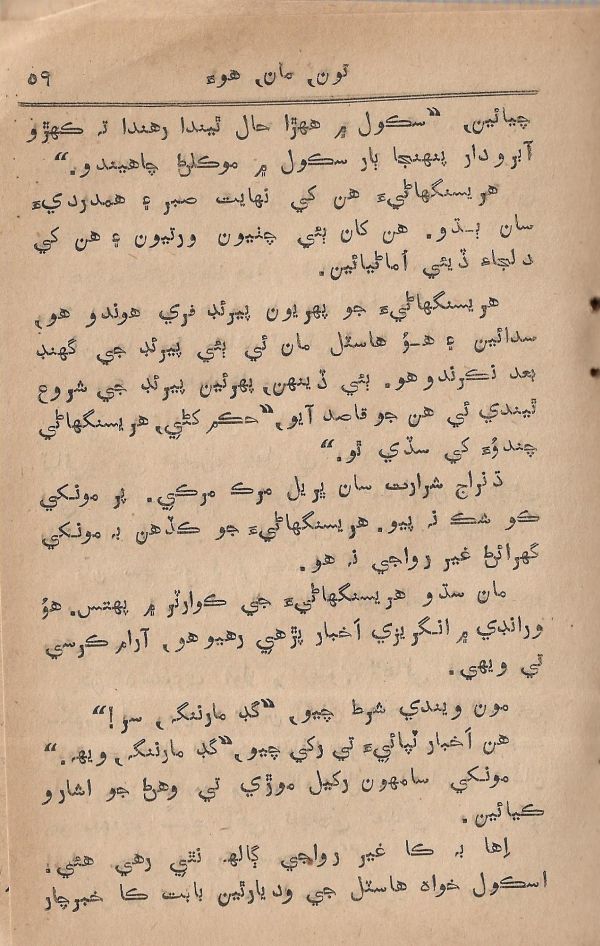 تون، مان، هوءَ ۵۹
چيائين، “سڪول ۾ ههڙا حال ٿيندا رهندا تہ ڪهڙو
آبرودار پنهنجا ٻار سڪول ۾ موڪلڻ چاهيندو.”
هريسنگهاڻيءَ هن کي نهايت صبر ۽ همدرديءَ
سان ٻڌو. هن کان ٻئي چٺيون ورتيون ۽ هن کي
دلجاءِ ڏيئي اُماڻيائين.
هريسنگهاڻيءَ جو پهريون پيرئڊ فري هوندو هو،
سدائين ۽ هو هاسٽل مان ئي ٻئي پيرئڊ جي گهنڊ
بعد نڪرندو هو. ٻئي ڏينهن، پهرئين پيرئڊ جي شروع
ٿيندي ئي هن جو قاصد آيو، “حڪم کڻي، هريسنگهاڻي
چندوءَ کي سڏي ٿو.”
ڌنراج شرارت سان ڀريل مرڪ مرڪي. پر مونکي
ڪو شڪ نہ پيو. هريسنگهاڻيءَ جو ڪڏهن بہ مونکي
گهرائڻ غير رواجي نہ هو.
مان سڌو هريسنگهاڻيءَ جي ڪوارٽر ۾ پهتس. هوُ
ورانڊي ۾ انگريزي اَخبار پڙهي رهيو هو، آرام ڪرسي
تي ويهي.
مون ويندي شرط چيو، “گڊ مارننگ، سر!”
هن اَخبار ٽپائيءَ تي رکي چيو، “گڊ مارننگ، ويهہ.”
مونکي سامهون رکيل موڙي تي وهڻ جو اشارو
ڪيائين.
اِها بہ ڪا غير رواجي ڳالهہ نٿي رهي هئي.
اسڪول خواه هاسٽل جي وديارٿين بابت ڪا خبرچار